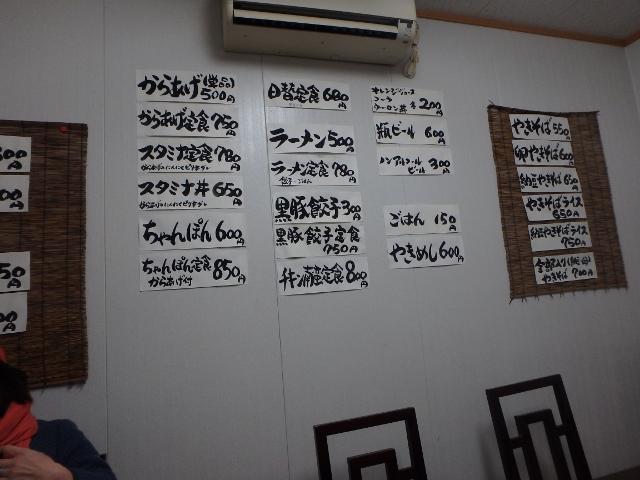 500円
00円
50円
00円
からあげ(単品)
500円
からあげ定食 750円
スタミナ定食 780円
スタミナ丼 650円
ちゃんぽん 600円
ちゃんぽん定食 850円
からあげ付
日替定食 680円
ラーメン 500円
ラーメン定食 780円
餃子・ごはん
黒豚餃子 300円
黒豚餃子定食
750円
チキン南蛮定食 800円
オレンジジュース
コーラ
ウーロン茶 各200円
瓶ビール 600円
ノンアルコール
ビール 300円
ごはん 150円
やきめし 600円
やきそば 550円
卵やきそば 600円
納豆やきそば 650円
やきそばライス
650円
納豆やきそばライス
750円
全部入り
やきそば 700円